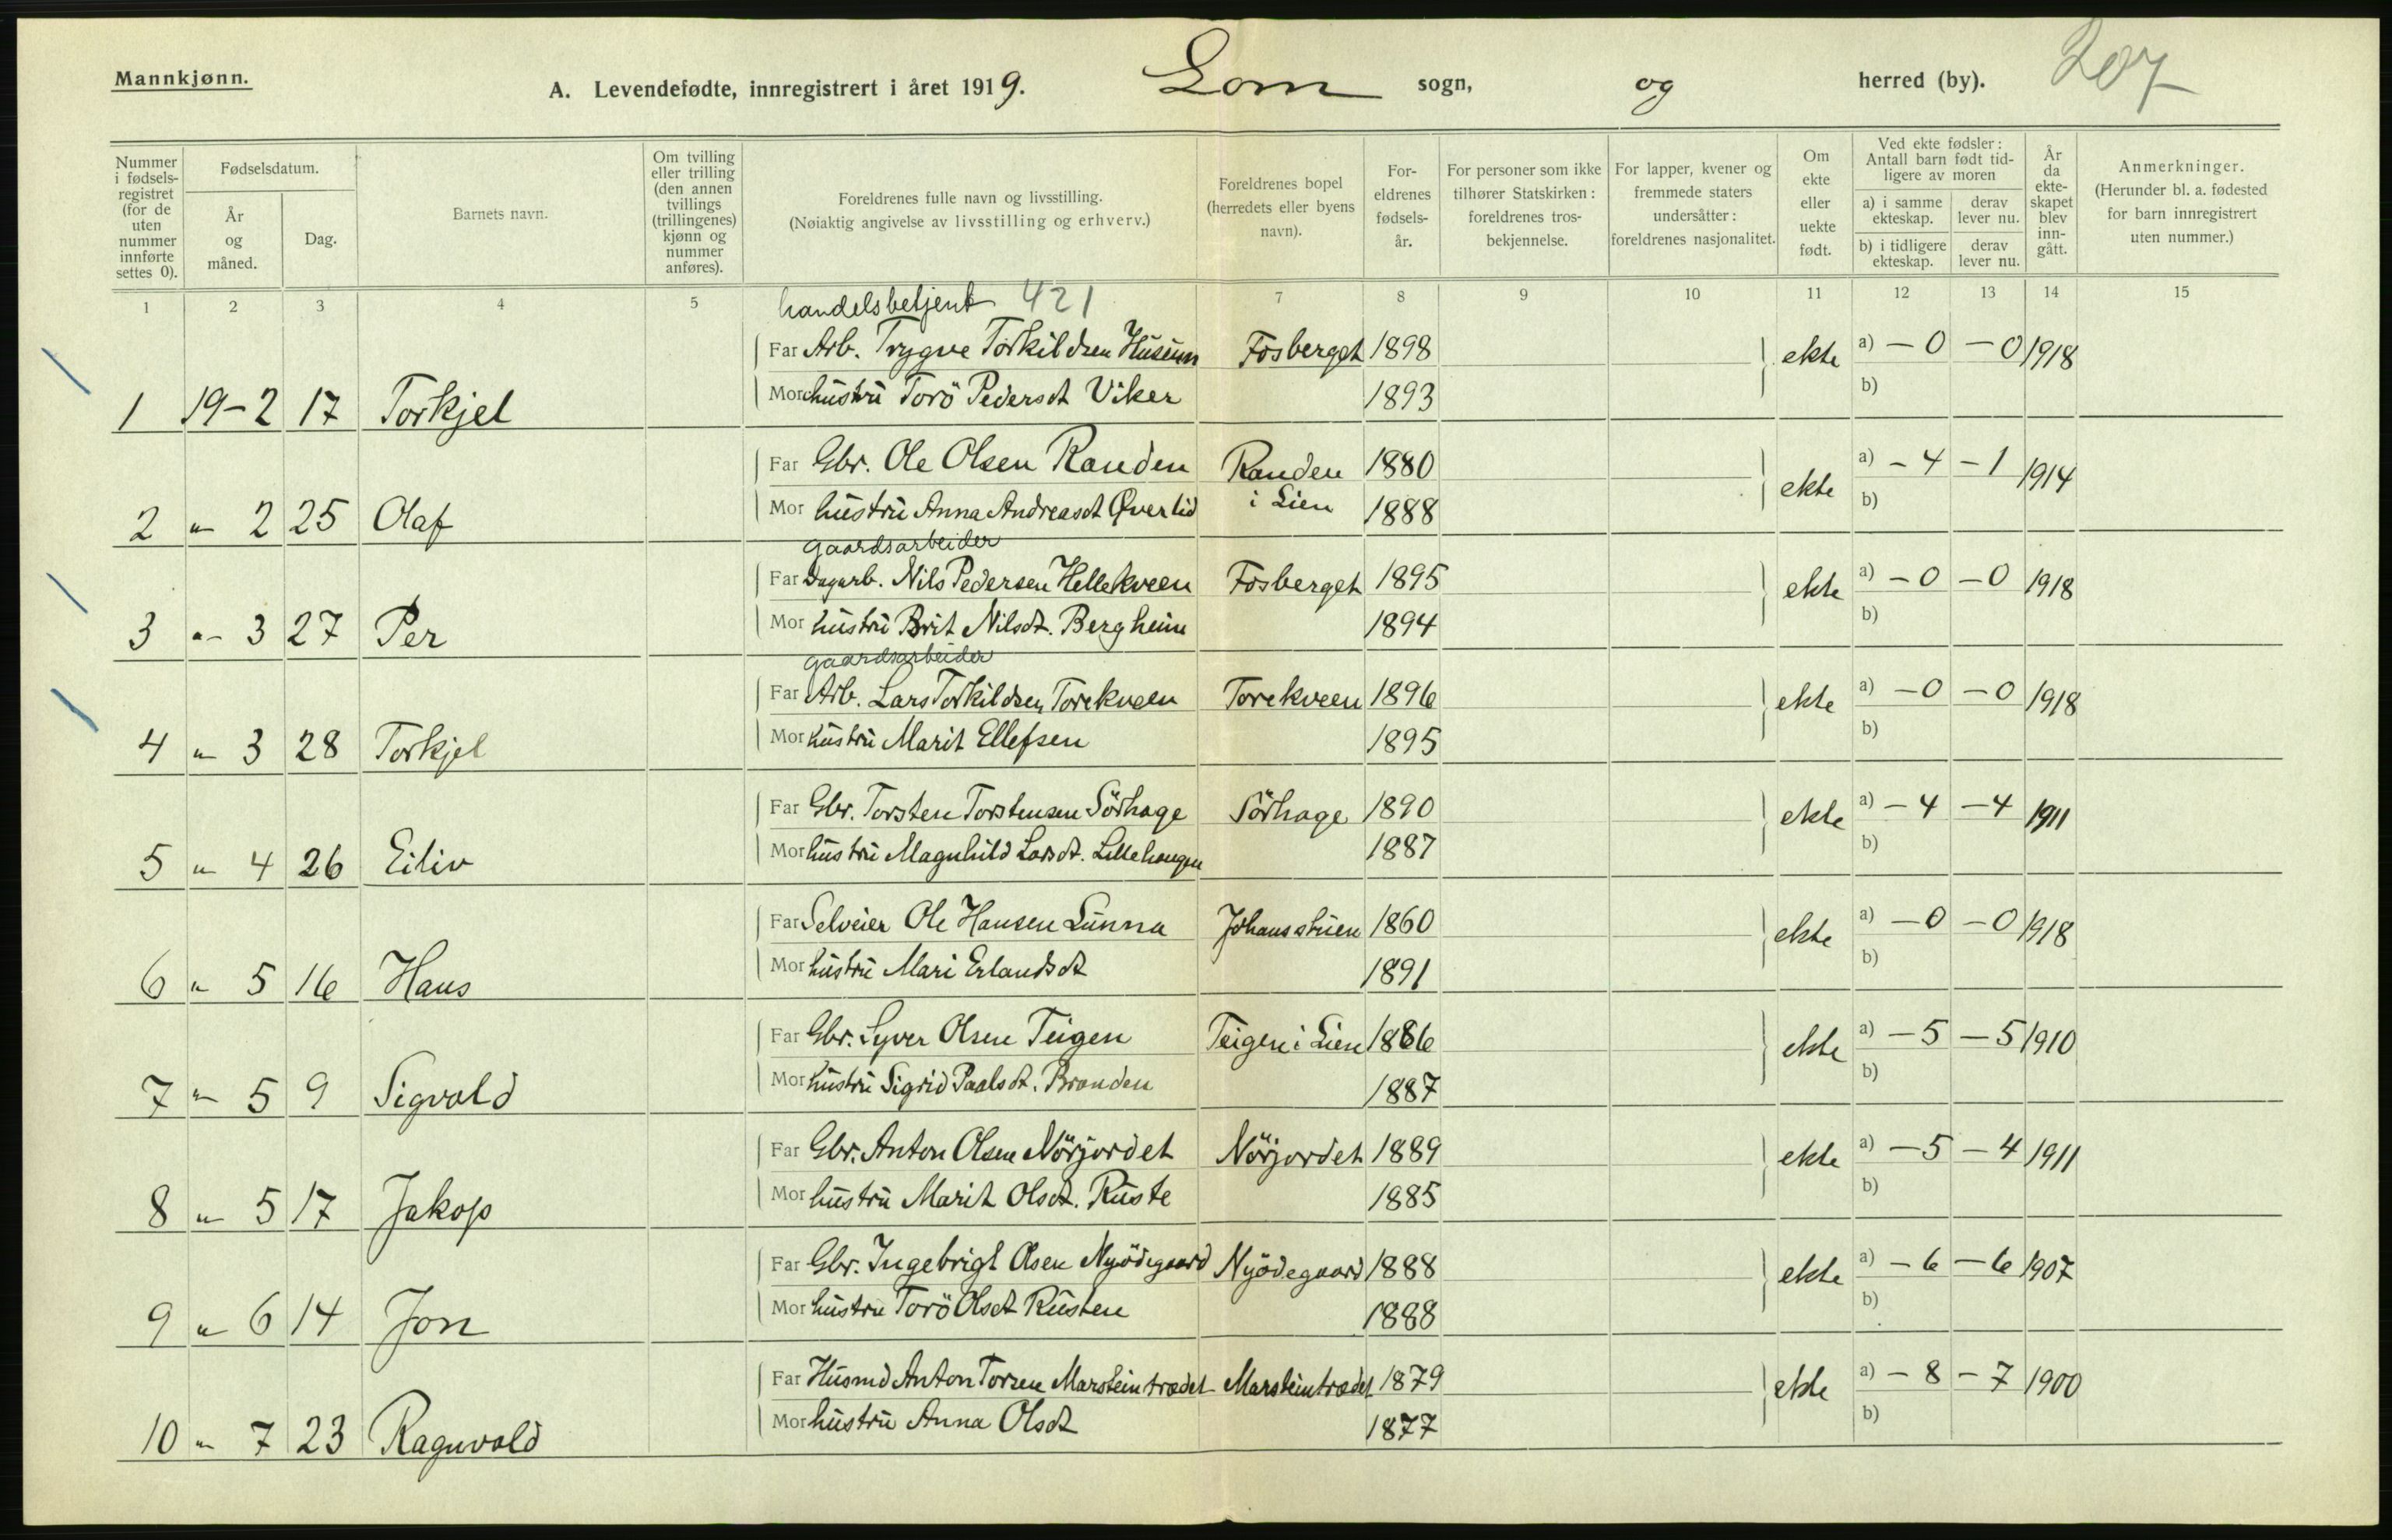 Mannkjønn.
A. Levendefødte, innregistrert i året 1919. Lom sogn, og herred (by). 207
Nummer i fødsels-registret (for de uten nummer innførte settes 0).
Fødselsdatum.
År og måned.
Dag.
Barnets navn.
Om tvilling eller trilling (den annen tvillings (trillingenes) kjønn og nummer anføres).
Foreldrenes fulle navn og livsstilling.
(Nøiaktig angivelse av livsstilling og erhverv.)
Foreldrenes bopel (herredets eller byens navn).
For-eldrenes fødsels-år.
For personer som ikke tilhører Statskirken: foreldrenes tros-bekjennelse.
For lapper, kvener og fremmede staters undersåtter: foreldrenes nasjonalitet.
Om ekte eller uekte født.
Ved ekte fødsler: Antall barn født tid-ligere av moren
a) i samme ekteskap. derav lever nu.
b) i tidligere ekteskap. derav lever nu.
År da ekte-skapet blev inn-gått.
Anmerkninger.
(Herunder bl. a. fødested for barn innregistrert uten nummer.)
1 2 3 4 5 7 8 9 10 11 12 13 14 15
handelsbetjent 421
Far Arb. Trygve Torkildsen Husum Fosberget 1898 ekte a) - 0 - 0 1918
1 19-2 17 Torkjel Mor hustru Torö Pedersdt Viker 1893 b)
Far Gbr. Ole Olsen Randen Randen 1880 ekte a) - 4 - 1 1914
2 " 2 25 Olaf Mor hustru Anna Andreasdt Øverlid i Lien 1888 b)
gaardsarbeider
Far Dagarb. Nils Pedersen Hellekveen Fosberget 1895 ekte a) - 0 - 0 1918
3 " 3 27 Per Mor hustru Brit Nilsdt. Bergheim 1894 b)
gaardsarbeider
Far Arb. Lars Torkildsen Torekveen Torekveen 1896 ekte a) - 0 - 0 1918
4 " 3 28 Torkjel Mor hustru Marit Ellefsen 1895 b)
Far Gbr. Torsten Torstensen Sörhage Sörhage 1890 ekte a) - 4 - 4 1911
5 " 4 26 Eiliv Mor hustru Magnhild Larsdt. Lillehaugen 1887 b)
Far Selveier Ole Hansen Lunna Johansstuen 1860 ekte a) - 0 - 0 1918
6 " 5 16 Hans Mor hustru Mari Erlandsdt 1891 b)
Far Gbr. Syver Olsen Teigen Teigen i Lien 1886 ekte a) - 5 - 5 1910
7 " 5 9 Sigvald Mor hustru Sigrid Paalsdt. Branden 1887 b)
Far Gbr. Anton Olsen Nörjordet Nörjordet 1889 ekte a) - 5 - 4 1911
8 " 5 17 Jakop Mor hustru Marit Olsdt. Ruste 1885 b)
Far Gbr. Ingebrigt Olsen Nyödegaard Nyödegaard 1888 ekte a) - 6 - 6 1907
9 " 6 14 Jon Mor hustru Torö Olsdt Rusten 1888 b)
Far Husmd Anton Torsen Marsteintrædet Marsteintrædet 1879 ekte a) - 8 - 7 1900
10 " 7 23 Ragnvald Mor hustru Anna Olsdt 1877 b)